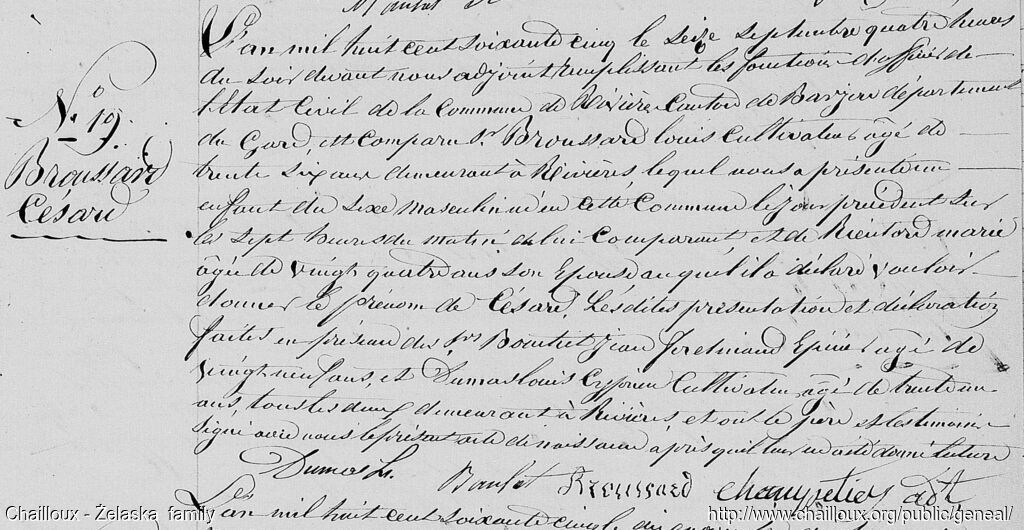 N° 19.
Broussard
Césard
L'an mil huit cent soixante cinq le seize septembre quatre heures
du soir devant nous adjoint remplissant les fonctions d'officier de
l'Etat Civil de la Commune de Rivières Canton de Barjac département
du Gard, est comparu Sr Broussard louis Cultivateur âgé de
trente six ans demeurant à Rivières lequel nous a présenté un
enfant du sexe masculin né en cette Commune le jour précédent sur
les sept heures du matin de lui Comparant, et de marie
âgée de vingt quatre ans son Epouse auquel il a déclaré vouloir
donner le prénom de Césard. Lesdites présentation et déclaration
faites en présence des Srs Jean ferdinand Epicier âgé de
vingt neuf ans, et Dumas louis Cyprien Cultivateur âgé de trente un
ans, tous les deux demeurant à Rivières, et ont le père et les témoins
signé avec nous le présent acte de naissance après qu'il leur en a été donné lecture
Dumas Ls. Broussard adt
L'an mil huit cent soixante cinq le
Chailloux - Želaska family
http://www.chailloux.org/public/geneal/